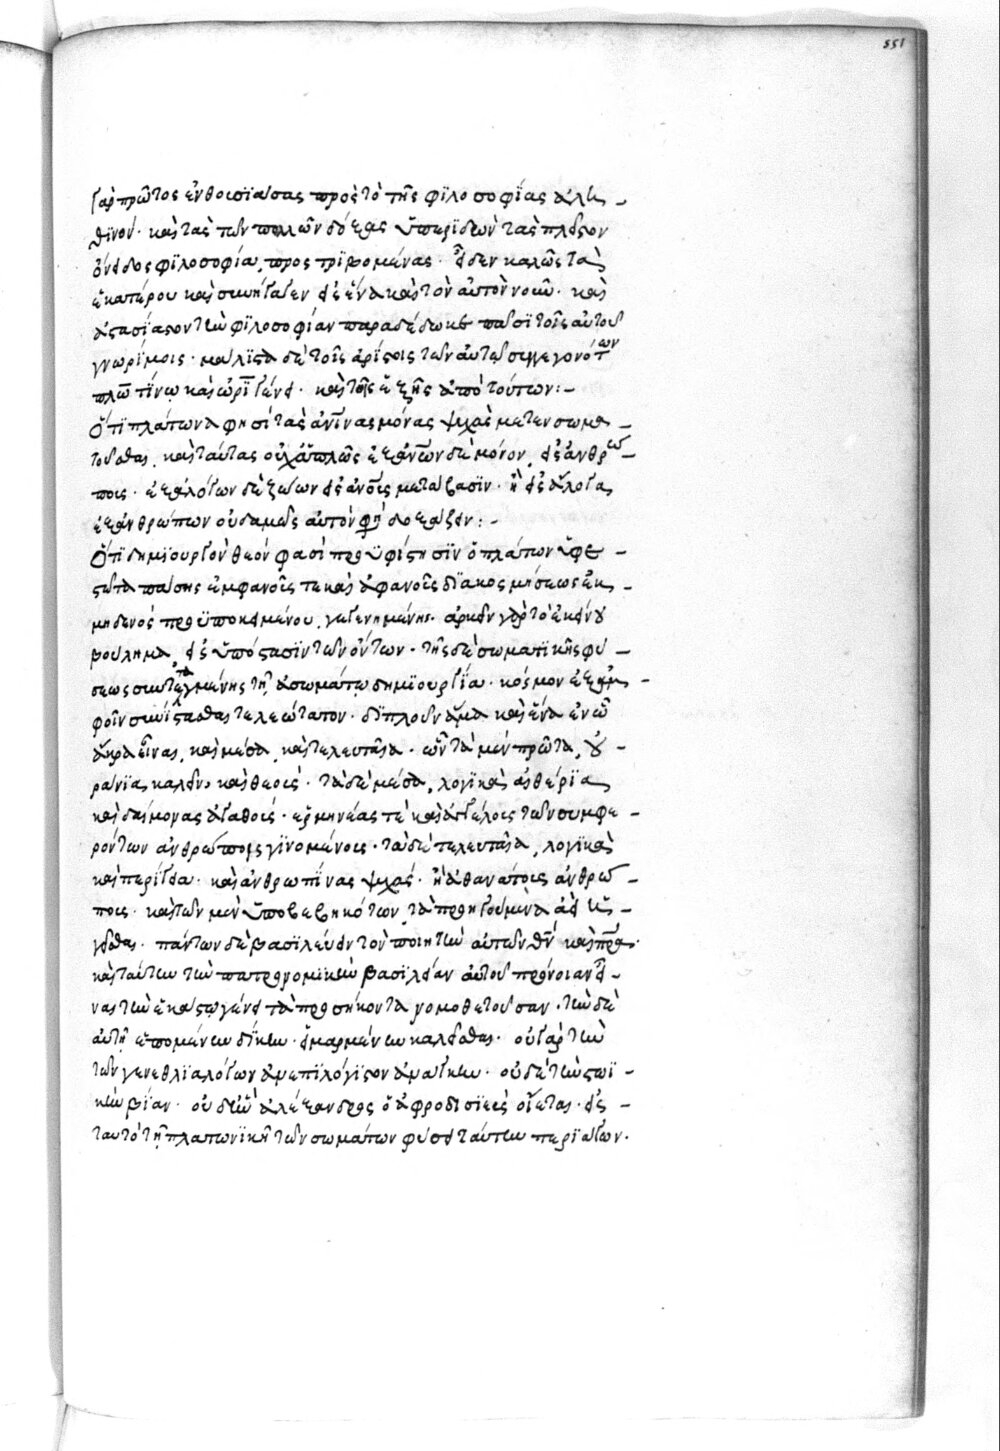 γὰρ πρῶτος ἐνθουσϊάσας πρὸς τὸ τῆς φϊλοσοφίας ἀλη-
θϊνόν. καὶ τὰς τῶν πολλῶν δόξας ὑπερϊδὼν τὰς πλέον
ὄνειδος φϊλοσοφία προστρϊβομένας. εἶδεν καλῶς τὰ
ἑκατέρου καὶ συνήγαγεν εἰς ἕνα καὶ τὸν αὐτὸν νοῦν. καὶ
ἀστασίαστον τὴν φϊλοσοφίαν παραδέδωκε πᾶσϊ τοῖς αὐτοῦ
γνωρίμοις. μάλϊστα δὲ τοῖς ἀρίστοις τῶν αὐτῶ συγγεγονότων
πλωτίνω καὶ ὠρϊγένει. καὶ τοῖς ἑξῆς ἀπὸ τούτων:-
Ὅτϊ πλάτωνα φησὶ τὰς ἀνίνας μόνας ψυχὰς μετενσωμα-
τοῦσθαι, καὶ ταύτας οὐχἁπλῶς ἐξανων δὲ μόνον, εἰς ἀνθρώ-
πους. ἐξαλόγων δὲ ζώων εἰς ἀνους μετάβασϊν. ἢ εἰς ἄλογα
ἐξανθρώπων οὐδαμῶς αὐτὸν φη δοξάζειν:-
Ὅτϊ δημϊουργὸν θεὸν φασὶ προϋφίστησϊν ὁ πλάτων ἐφε-
στῶτα πάσης ἐμφανοῦς τε καὶ ἀφανοῦς δϊακοσμήσεως ἐκ
μηδενὸς προϋποκειμένου γεγενημένης. ἀρκεῖν γὰρ τὸ ἐκείνου
βούλημα, εἰς ὑπόστασϊν τῶν ὄντων. τῆς δὲ σωματϊκῆς φύ-
σεως συνταγμένης τῆ ἀσωμάτω δημϊουργία. κόσμον ἐξαμ-
φοῖν συνϊστασθαι τελεώτατον. δϊπλοῦν ἅμα καὶ ἕνα ἐν ὧ
ἄκρα εἶναι, καὶ μέσα, καὶ τελευταῖα. ὧν τὰ μὲν πρῶτα, οὐ-
ράνϊα καλεῖν καὶ θεούς. τὰ δὲ μέσα, λογϊκὰ αἰθέρϊα
καὶ δαίμονας ἀγαθούς. ἑρμηνέας τὲ καὶ ἀγγέλους τῶν συμφε-
ρόντων ἀνθρώποις γϊνομένους. τὰ δὲ τελευταῖα, λογϊκὰ
καὶ περίγεια. καὶ ἀνθρωπίνας ψυχὰς. ἢ ἀθανάτους ἀνθρώ-
πους. καὶ τῶν μὲν ὑποβεβηκότων, τὰ προηγούμενα ἀεὶ ἡ-
γεῖσθαι. πάντων δὲ βασϊλεύειν τὸν ποιητὴν αὐτῶν θν̅ καὶ πρα̅.
καὶ ταύτην τὴν πατρονομϊκὴν βασϊλείαν αὐτοῦ πρόνοιαν εἶ-
ναι τὴν ἑκάστω γένει τὰ προσήκοντα νομοθετοῦσαν. τὴν δὲ
αὐτῆ ἑπομένην δίκην. εἱμαρμένην καλεῖσθαι. οὐ γὰρ τὴν
τῶν γενεθλϊαλόγων ἀμεπϊλόγϊστον ἀμαγκην. οὐδὲ τὴν στωϊ-
κὴν βίαν. οὐδ ἣν ἀλέξανδρος ὁ ἀφροδισϊεὺς οἴεται. εἰς
ταυτὸ τῆ πλατωνϊκῆ τῶν σωμάτων φύσει ταύτην περϊάγων.